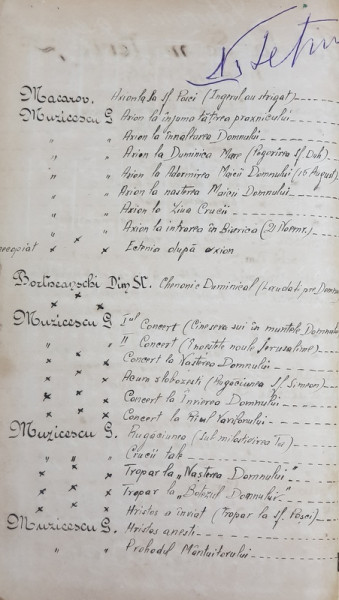 Macarov. Axion la Sf. Pasci (Ingerul au strigat)
Muzicescu G Axion la înjumătățirea praznicului
" " Axion la Innaltarea Domnului
" " Axion la Duminica Mare (Pogorîrea Sf. Duh)
" " Axion la Adormirea Maicii Domnului (15 August)
" " Axion la nasterea Maicii Domnului
" " Axion la Ziua Crucii
" " Axion la intrarea în Biserica (21 Noemr.)
" " Ectenia după axion
Chenonic Duminical (Laudati pre Domnul
Muzicescu G Iul Concert (Cine se va sui în muntele Domnului
" " II Concert
" " Concert la Nasterea Domnului
" " Acum slobozesti (Rugăciunea Sf. Simeon)
" " Concert la Invierea Domnului
" " Concert la
Muzicescu G. Rugăciunea (Sub milostivirea Ta)
" " Crucii tale
" " Tropar la „Nasterea Domnului"
" " Tropar la „Botezul Domnului"
" " Hristos a înviat (Tropar la Sf. Pasci)
Muzicescu G. Hristos anesti
" " Prohodul Mântuitorului